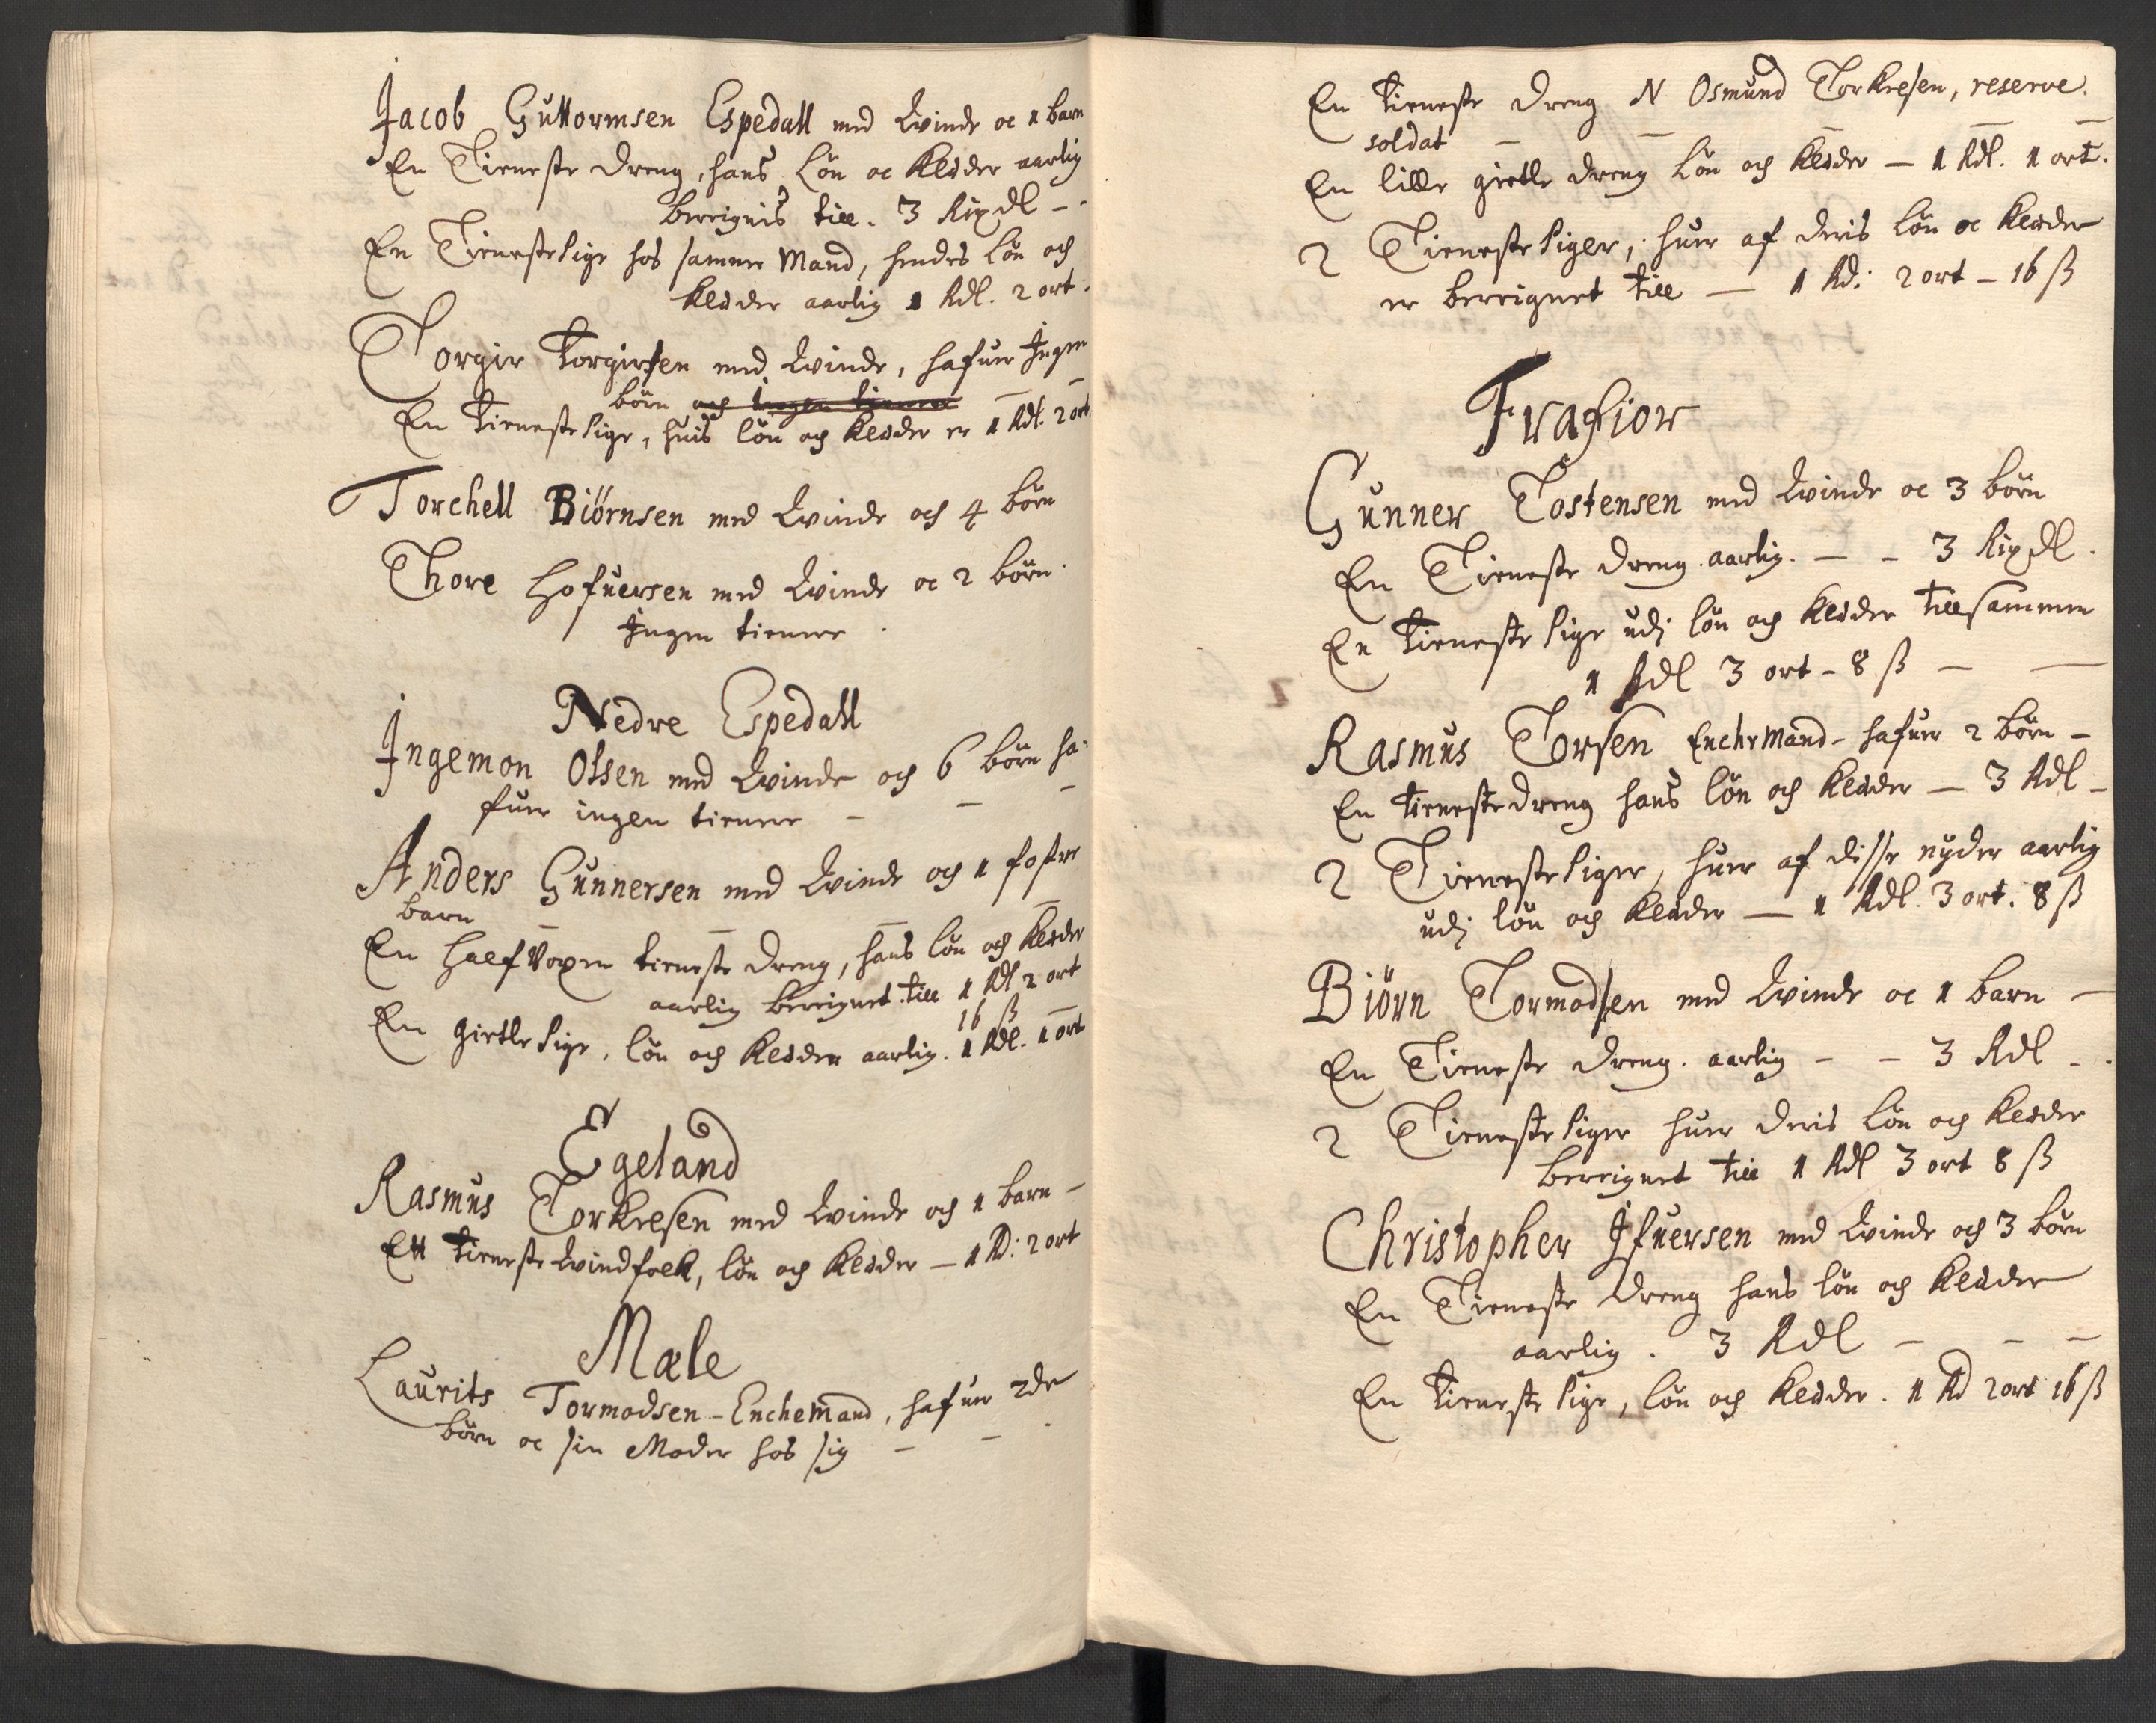 Jacob Guttormsen Espedall med Qvinde oc 1 barn
En Tieneste dreng, hans Løn oc Kleder aarlig
berignis till. 3 Rixdl - -
En Tieneste Pige hos samme Mand, hendes Løn och
Kleder aarlig 1 Rdl. 2 ort.
Torgir Torgirsen med Qvinde, hafuer Ingen
børn och ingen tienere
En Tieneste Pige, huis løn och Kleder er 1 Rdl. 2 ort
Torchell Biörnsen med Qvinde och 4 børn
Thore Hofuersen med Qvinde oc 2 børn.
Ingen tienere.
Nedre Espedall
Ingemon Olsen med Qvinde och 6 børn ha-
fuer ingen tienere - - -
Anders Gunnersen med Qvinde och 1 foster
barn - - -
En half Voxen tieneste dreng, hans løn och Kleder
aarlig berignet till 1 Rdl 2 ort
16 ß
En giette Pige, løn och Kleder aarlig. 1 Rdl. 1 ort
Egeland
Rasmus Torkelsen med Qvinde och 1 barn -
Ett Tieneste Qvindfolk, løn och Kleder - 1 R: 2 ort
Mæle
Laurits Tormodsen - Enchemand, hafuer 2de
børn oc sin Moder hos sig - - .
En tieneste dreng N Osmund Torkelsen, reserve
soldat - - - - -
En lille giette dreng Løn och Kleder - 1 Rdl. 1 ort.
2 Tieneste Piger, huer af deris Løn oc Kleder
er berignet till - 1 Rd: 2 ort - 16 ß
Frafior
Gunner Tostensen med Qvinde oc 3 børn
En Tieneste dreng aarlig. - - 3 Rixdl.
En Tieneste Pige udj løn och Kleder tillsammen
1 Rdl 3 ort - 8 ß - -
Rasmus Torsen Enchemand - hafuer 2 børn -
En tieneste dreng hans løn och Kleder - 3 Rdl -
2 Tieneste Piger, huer af disse nyder aarlig
udj løn och Kleder - 1 Rdl. 3 ort. 8 ß
Biörn Tormodsen med Qvinde oc 1 barn -
En Tieneste dreng. aarlig - - 3 Rdl - .
2 Tieneste Piger huer deris løn och Kleder
berignet till 1 Rdl 3 ort 8 ß
Christopher Ifuersen med Qvinde och 3 børn
En Tieneste dreng hans løn och Kleder
aarlig . 3 Rdl - - -
En tieneste Pige, løn och Kleder. 1 Rd 2 ort 16 ß